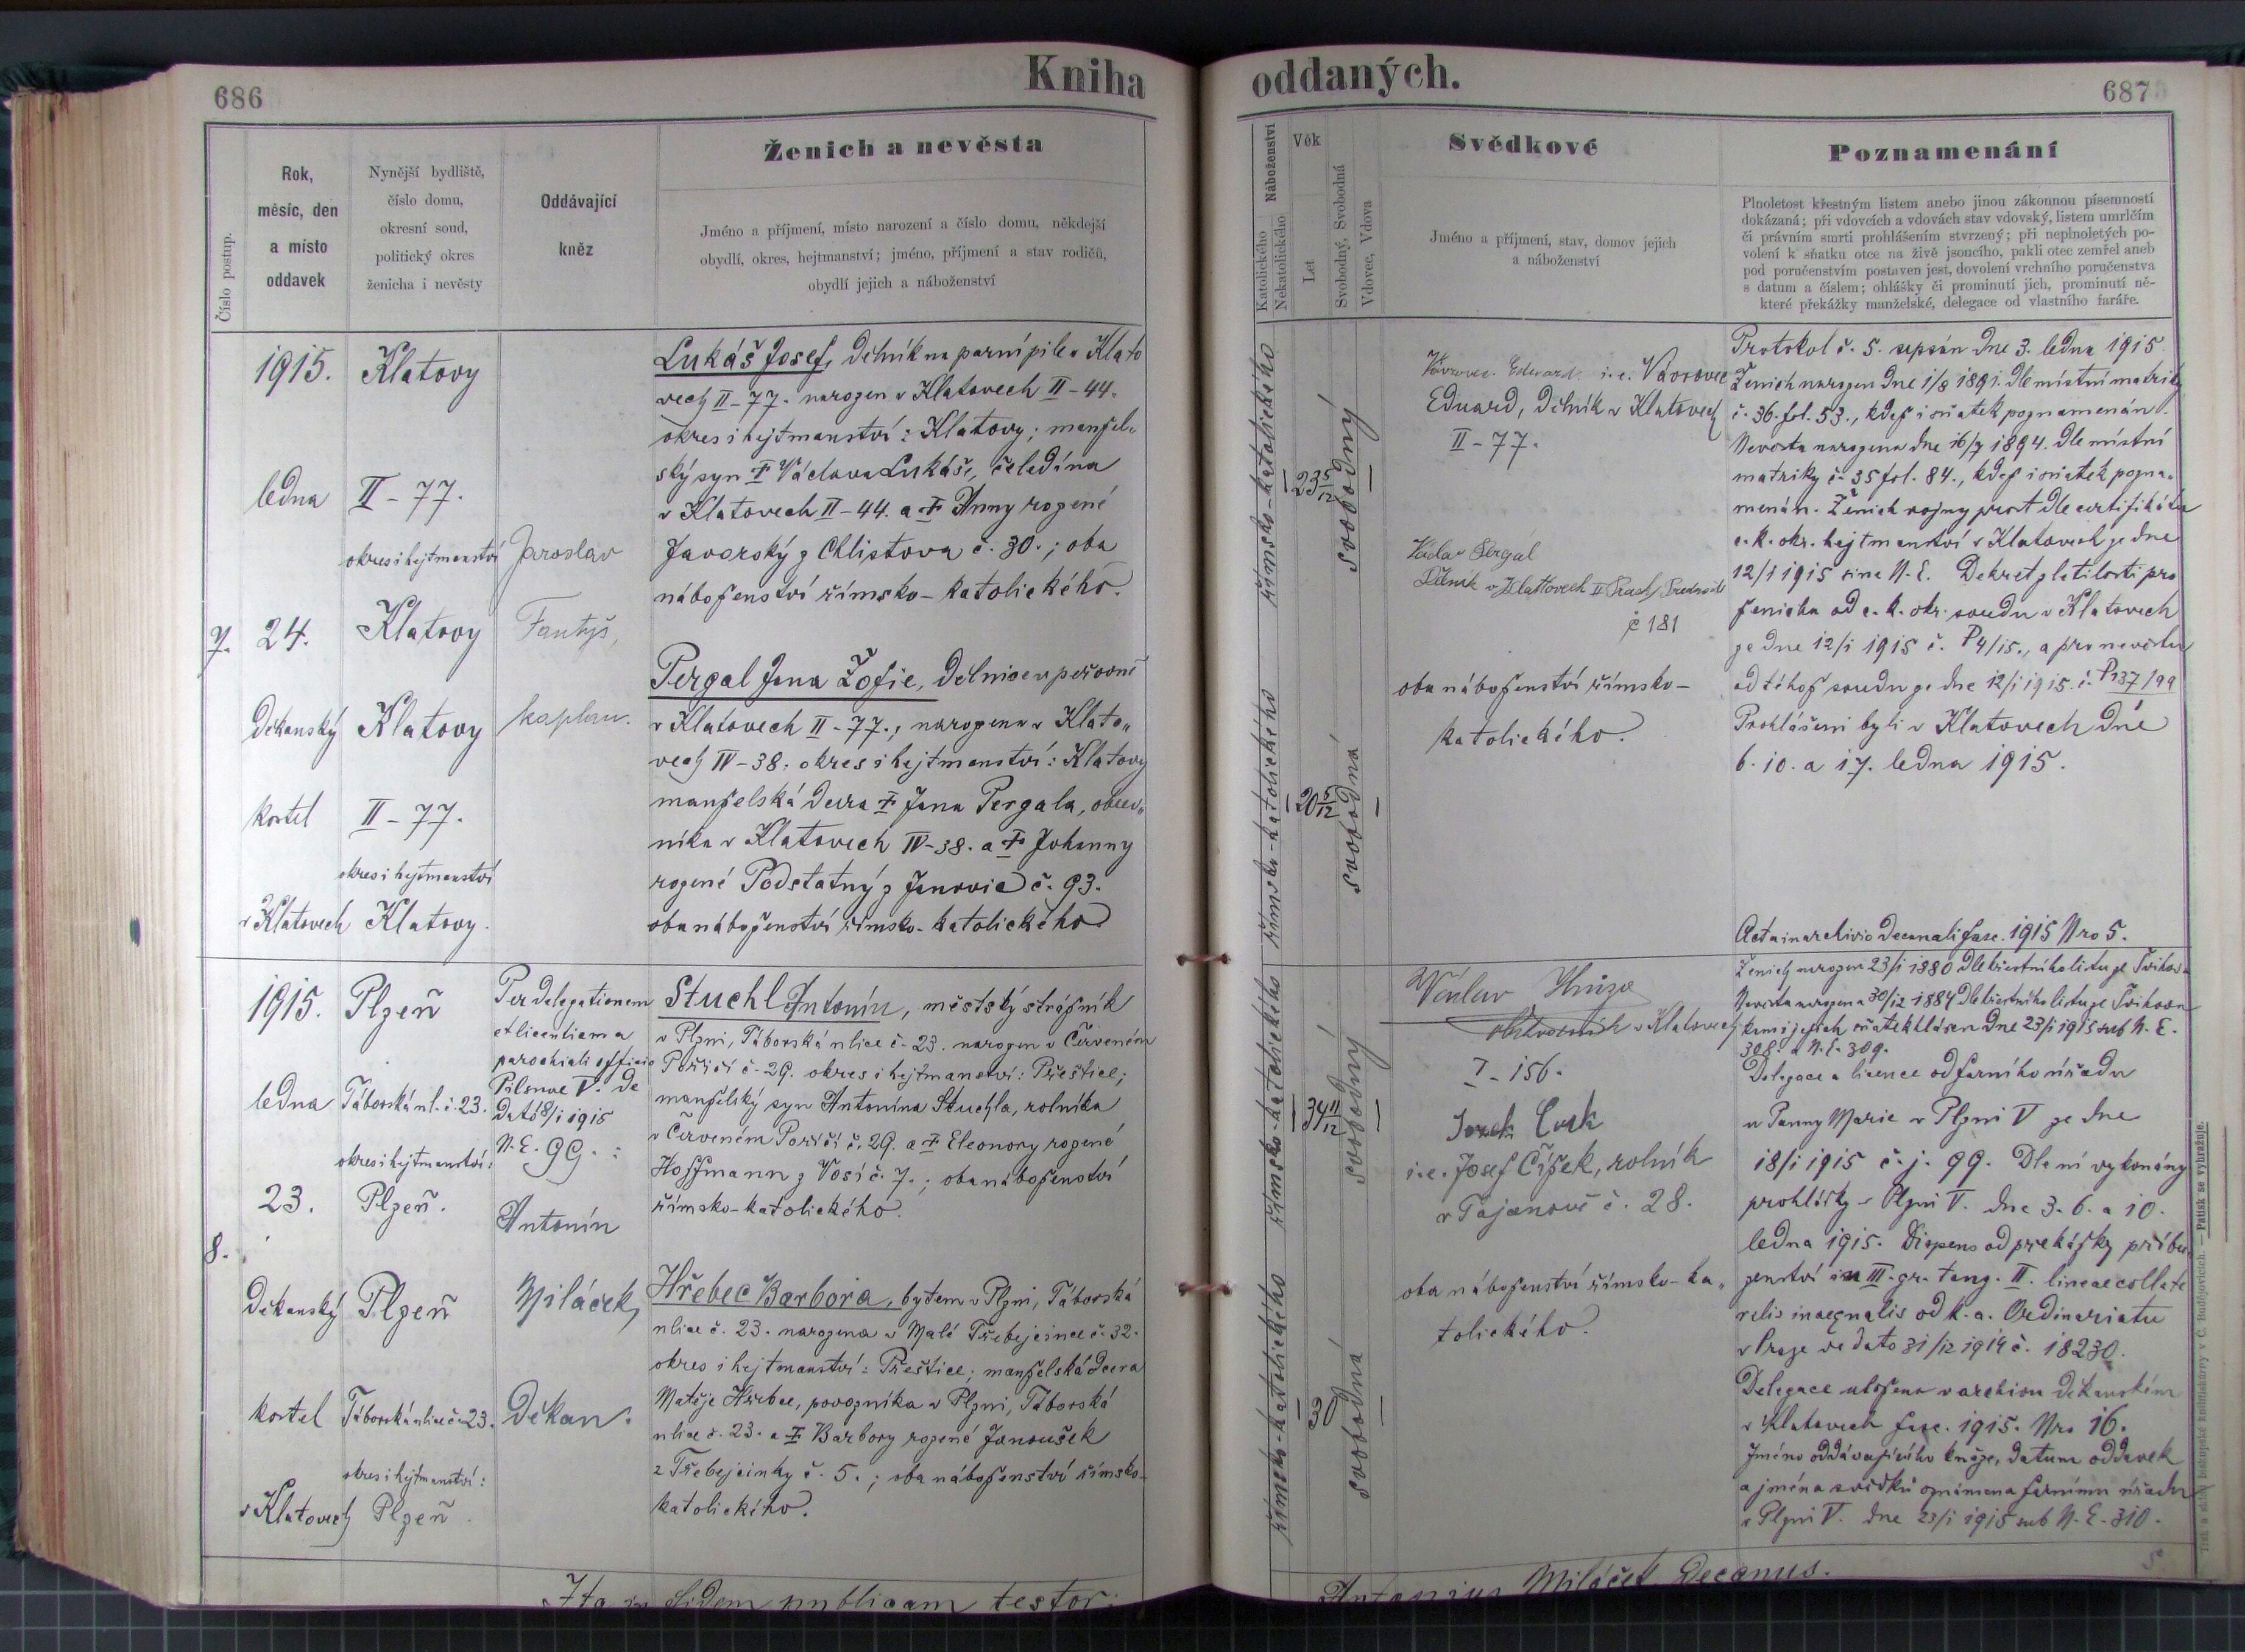 686
Kniha
oddaných.
687
Číslo postup.
Rok,
měsíc, den
a místo
oddavek
Nynější bydliště,
číslo domu,
okresní soud,
politický okres
ženicha i nevěsty
Oddávající
kněz
Ženich a nevěsta
Jméno a příjmení, místo narození a číslo domu, někdejší
obydlí, okres, hejtmanství; jméno, příjmení a stav rodičů,
obydlí jejich a náboženství
Náboženství
Katolického
Nekatolického
Věk
Let
Svobodný, Svobodná
Vdovec, Vdova
Svědkové
Jméno a příjmení, stav, domov jejich
a náboženství
Poznamenání
Plnoletost křestným listem anebo jinou zákonnou písemností
dokázaná; při vdovcích a vdovách stav vdovský, listem umrlčím
či právním smrti prohlášením stvrzený; při neplnoletých po-
volení k sňatku otce na živě jsoucího, pakli otec zemřel aneb
pod poručenstvím postaven jest, dovolení vrchního poručenstva
s datum a číslem; ohlášky či prominutí jich, prominutí ně-
které překážky manželské, delegace od vlastního faráře.
7.
1915.
ledna
24.
Děkanský
kostel
v Klatovech
Klatovy
II - 77.
okres i hejtmanství
Klatovy
Klatovy
II - 77.
okres i hejtmanství
Klatovy.
Jaroslav
Fantyš,
kaplan.
Lukáš Josef, dělník na parní pile v Klato
vech II - 77. narozen v Klatovech II - 44.
okres i hejtmanství: Klatovy; manžel-
ský syn † Václava Lukáše, čeledína
v Klatovech II - 44. a † Anny rozené
Javorský z Chlistova č. 30.; oba
náboženství římsko - katolického.
Pergal Jana Žofie, dělnice v peřovně
v Klatovech II - 77., narozena v Klato„
vech IV - 38. okres i hejtmanství: Klatovy
manželská dcera † Jana Pergala, obuv„
níka v Klatovech IV - 38. a † Johanny
rozené Podstatný z Janovic č. 93.
oba náboženství římsko - katolického
římsko - katolického
23 5/12
svobodný
římsko - katolického
20 5/12
svobodná
Vavrovec Eduard i. e. Vavrovec
Eduard, dělník v Klatovech
II - 77.
Dělník v Klattovech II
č 181
oba náboženství římsko -
katolického.
Protokol č. 5. sepsán dne 3. ledna 1915.
Ženich narozen dne 1/8 1891. Dle místní matriky
č. 36. fol. 53., kdež i sňatek poznamenán.
Nevěsta narozena dne 16/7 1894. Dle místní
matriky č. 35 fol. 84., kdež i sňatek pozna„
menán. Ženich vojny prost dle certifikátu
c. k. okr. hejtmanství v Klatovech ze dne
12/1 1915 sine N. E. Dekret zletilosti pro
ženicha od c. k. okr. soudu v Klatovech
ze dne 12/1 1915 č. P 4/15., a pro nevěstu
od téhož soudu ze dne 12/1 1915. č. P 137/99
Prohlášeni byli v Klatovech dne
6. 10. a 17. ledna 1915.
Acta in archivio decanali fasc. 1915 Nro 5.
8.
1915.
ledna
23.
Děkanský
kostel
v Klatovech
Plzeň
Táborská ul. č. 23.
okres i hejtmanství:
Plzeň.
Plzeň
Táborská ulice č. 23.
okres i hejtmanství:
Plzeň.
Per delegationem
et licentiam a
parochiali officio
Pilsnae V. de
dato 18/1 1915
N. E. 99.:
Antonín
Miláček,
Děkan.
Stuchl Antonín, městský strážník
v Plzni, Táborská ulice č. 23. narozen v Červeném
Poříčí č. 29. okres i hejtmanství: Přeštice;
manželský syn Antonína Stuchla, rolníka
v Červeném Poříčí č. 29. a † Eleonory rozené
Hoffmann z Vosí č. 7.; oba náboženství
římsko - katolického.
Hřebec Barbora, bytem v Plzni, Táborská
ulice č. 23. narozena v Malé Třebejcince č. 32.
okres i hejtmanství: Přeštice; manželská dcera
Matěje Hřebce, povozníka v Plzni, Táborská
ulice č. 23. a † Barbory rozené Janoušek
z Třebejcinky č. 5.; oba náboženství římsko-
katolického.
římsko - katolického
34 11/12
svobodný
římsko - katolického
30
svobodná
Václav Hnízo
v Klatovech
I - 156.
i. e. Josef Čížek, rolník
v Tajanově č. 28.
oba náboženství římsko - ka„
tolického.
Ženich narozen 23/1 1880 dle křestního listu ze Švihova
Nevěsta narozena 30/12 1884 dle křestního listu ze Švihova
kamž i jejich sňatek hlášen dne 23/1 1915 sub N. E.
308. a N. E. 309.
Delegace a licence od farního úřadu
u Panny Marie v Plzni V ze dne
18/1 1915 č. j. 99. Dle ní vykonány
prohlášky v Plzni V. dne 3. 6. a 10.
ledna 1915. Dispens od překážky příbu„
zenství in III. gr. tang. II. lineae collate
ralis inaequalis od k. a. Ordinariatu
v Praze ve dato 31/12 1914 č. 18230.
Delegace uložena v archivu děkanském
v Klatovech fasc. 1915. Nro 16.
Jméno oddávajícího kněze, datum oddavek
a jména svědků oznámena farnímu úřadu
v Plzni V. dne 23/1 1915 sub N. E. 310.
Ita in fidem publicam testor:
Antonius Miláček Decanus.
knihtiskárny v Č. Budějovicích. — Patisk se vyhražuje.